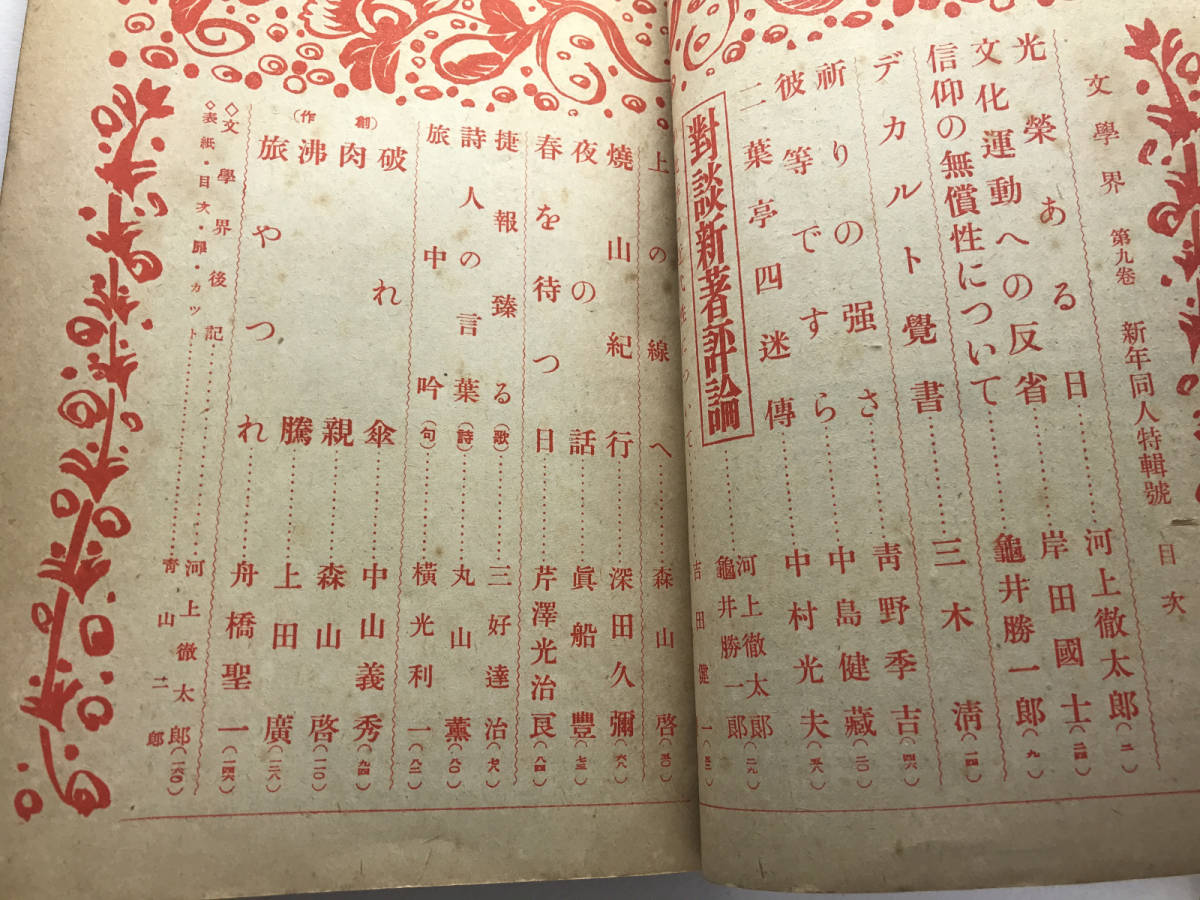 文學界 第九卷 新年同人特輯號 目次
光榮ある日……河上徹太郎(二)
文化運動への反省……岸田國士(二四)
信仰の無償性について……龜井勝一郎(九)
デカルト覺書……三木清(一四)
祈りの强さ……靑野季吉(四六)
彼等ですら……中島健藏(二〇)
二葉亭四迷傳……中村光夫(五八)
對談新著評論……河上徹太郎 龜井勝一郎(二九)
いて……吉田健一(五三)
上の線へ……森山啓(五〇)
燒山紀行……深田久彌(六八)
夜の話……眞船豐(七三)
春を待つ日……芹澤光治良(八四)
捷報臻る(歌)……三好達治(七八)
詩人の言葉(詩)……丸山薰(八〇)
旅中吟(句)……橫光利一(八二)
(創作)
破れ傘……中山義秀(九四)
肉親……森山啓(一一〇)
沸騰……上田廣(一二八)
旅やつれ……舟橋聖一(一四六)
◇文學界後記……河上徹太郎(一六〇)
◇表紙・目次・扉・カット……靑山二郎